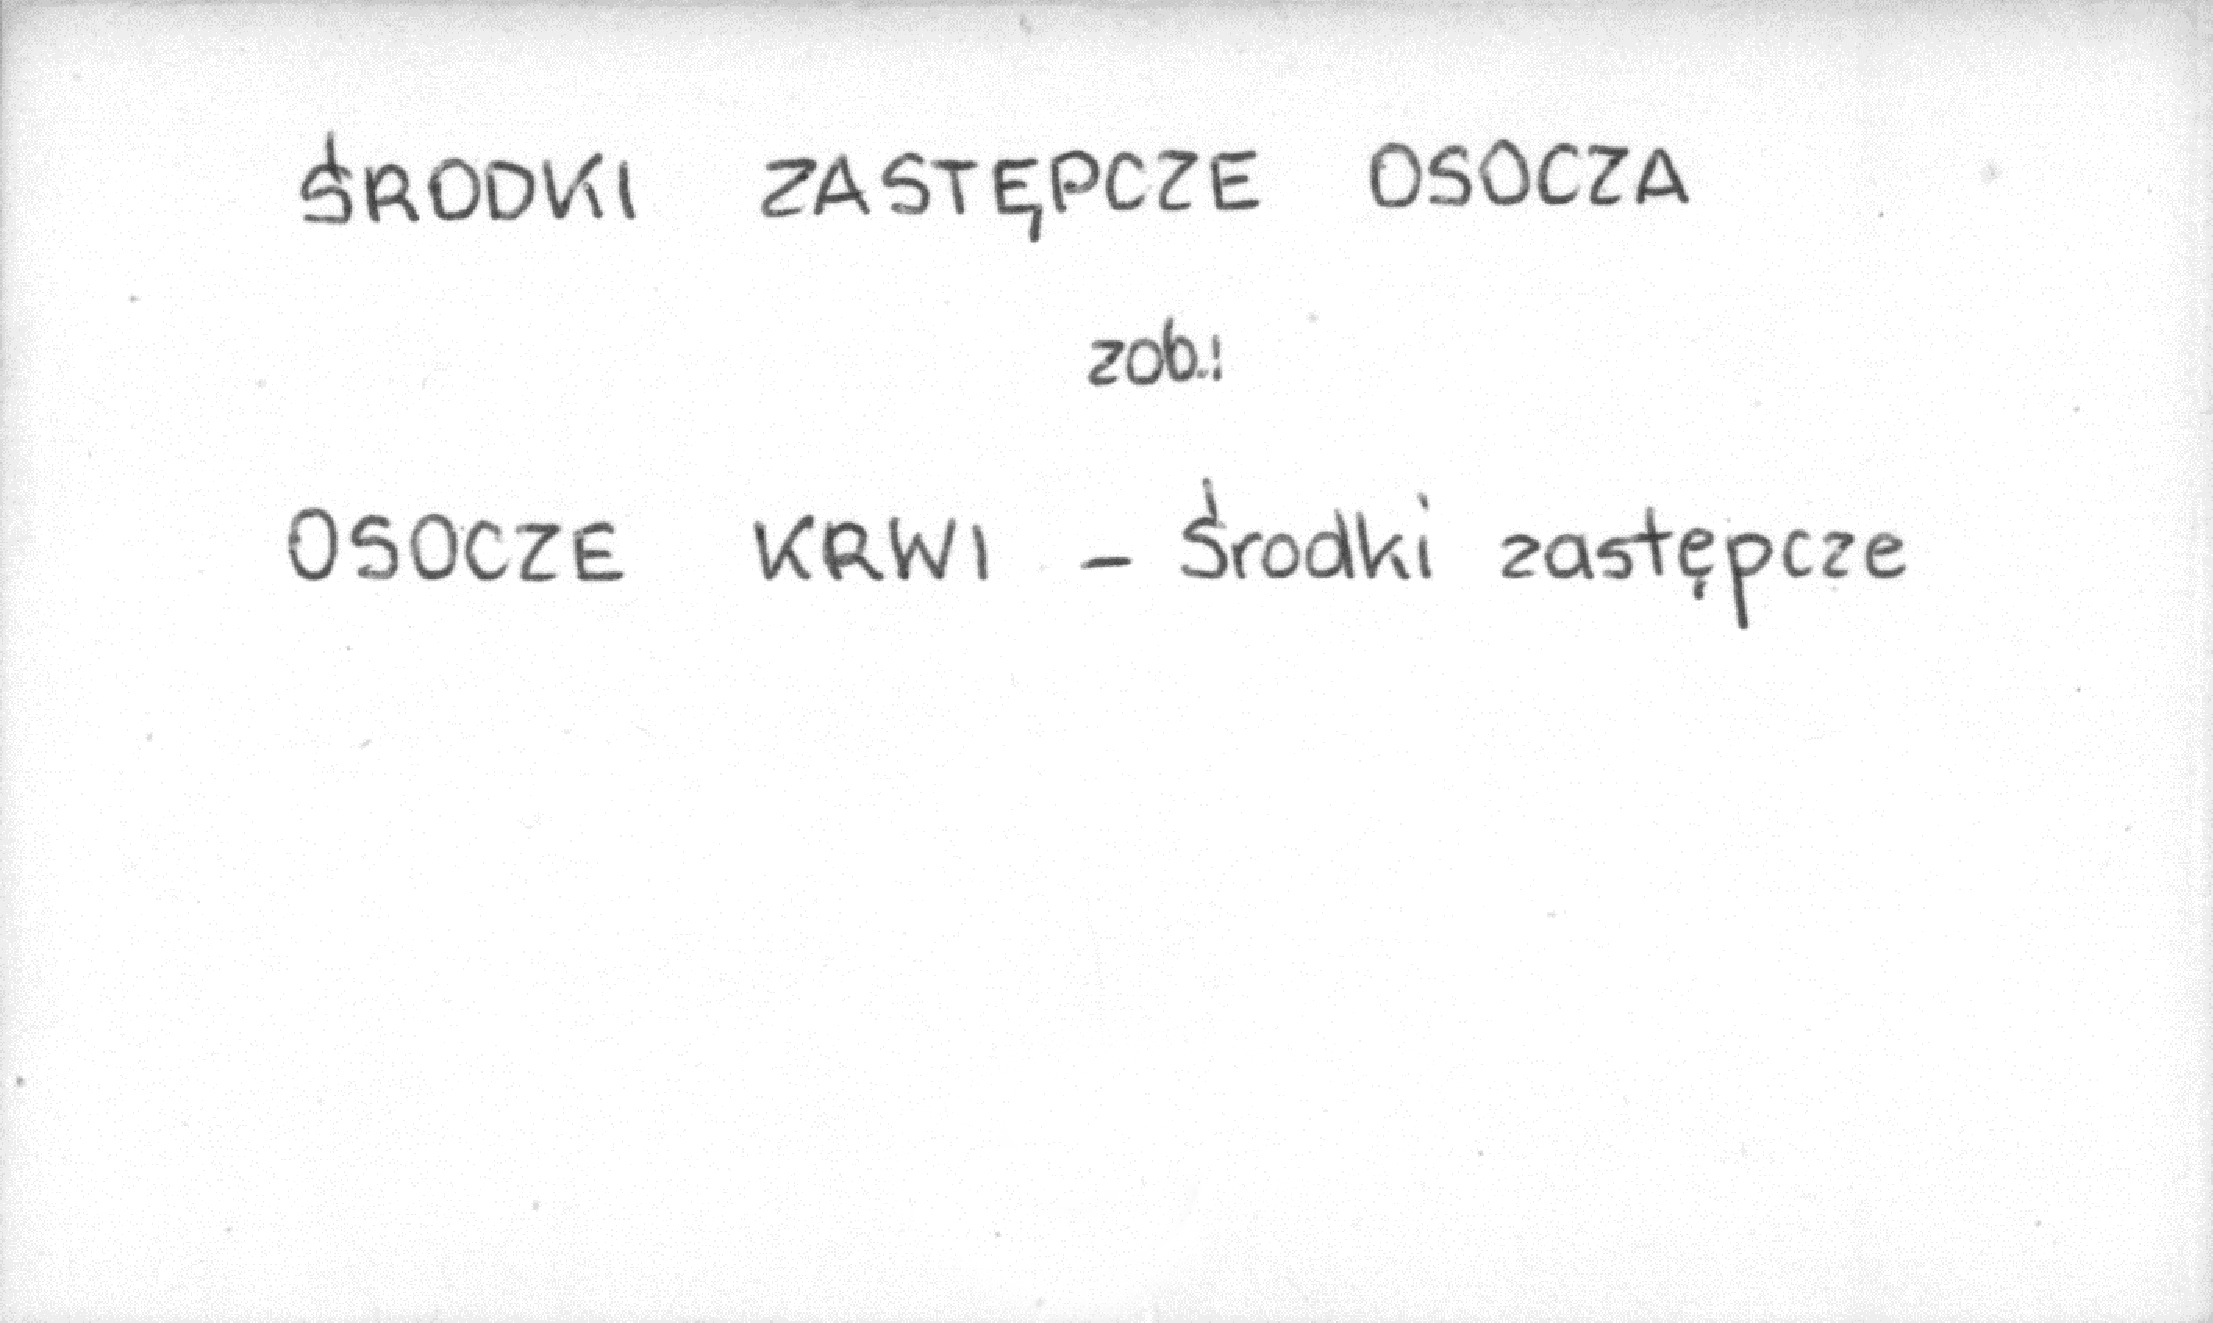 ŚRODKI ZASTĘPCZE OSOCZA
zob.:
OSOCZE KRWI - Środki zastępcze